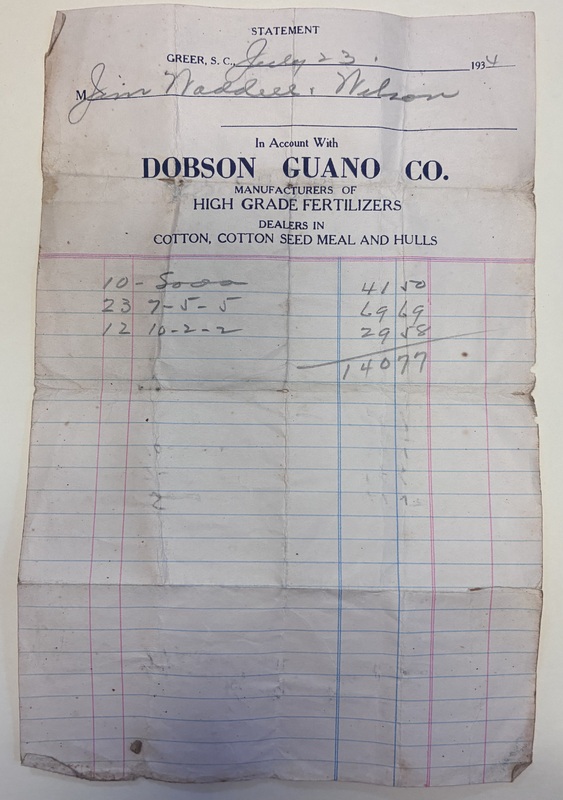 STATEMENT
GREER, S. C., July 23. 1934
M Jim Waddell. Wilson
In Account With
DOBSON GUANO CO.
MANUFACTURERS OF
HIGH GRADE FERTILIZERS
DEALERS IN
COTTON, COTTON SEED MEAL AND HULLS
10 - Sooaa 41 50
23 7-5-5 69 69
12 10-2-2 29 58
140 77